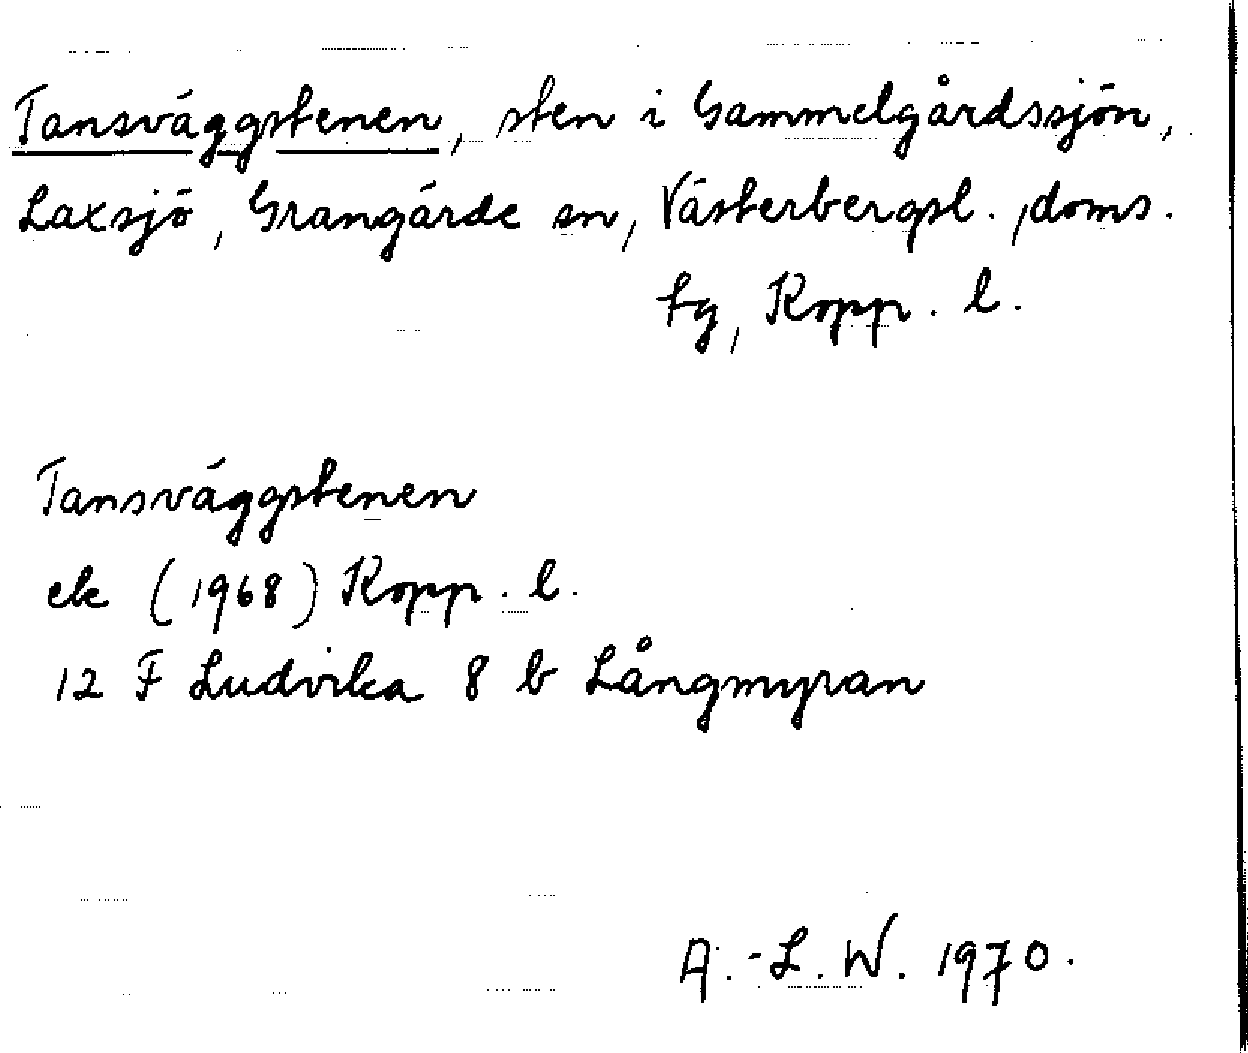 Tansväggstenen, sten i Gammelgårdssjön,
Laxsjö, Grangärde sn, Västerbergsl., doms.
tg, Kopp. l.
Tansväggstenen
ek (1968) Kopp. l.
12 F Ludvika 8 b Långmyran
A.-L. W. 1970.